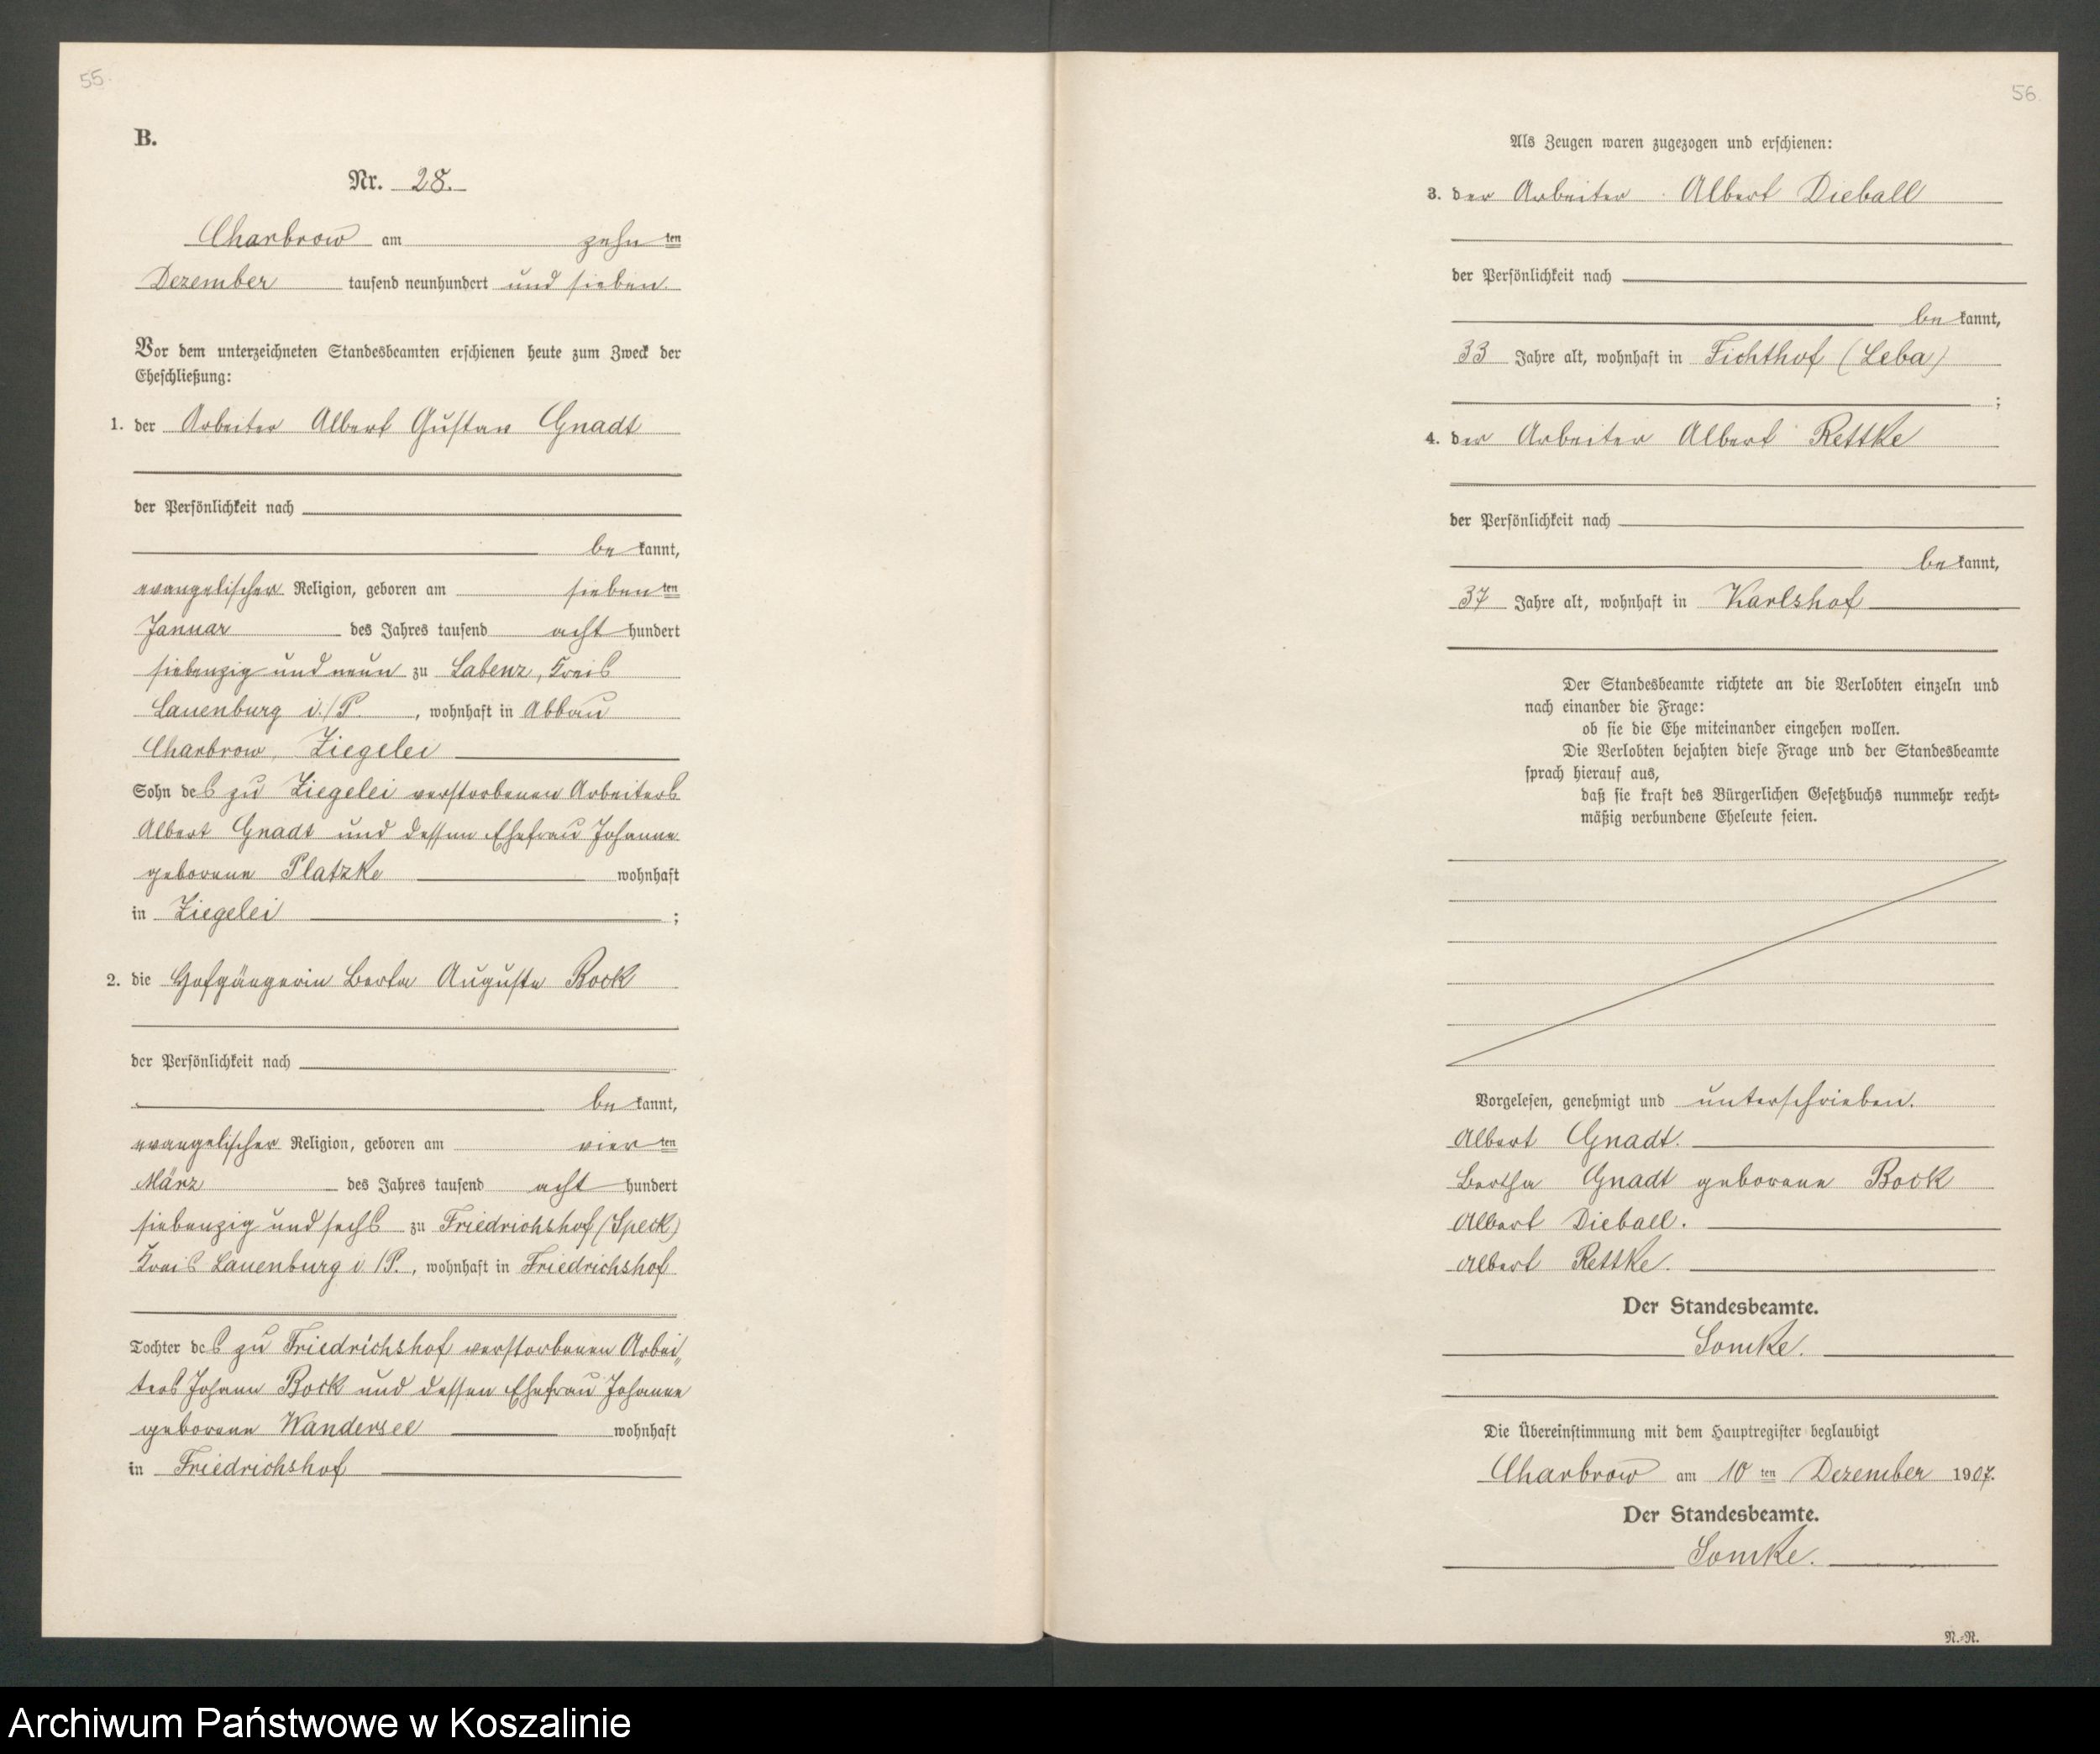 55.
B.
Nr. 28.
Charbrow am zehnten
Dezember tausend neunhundert und sieben.
Vor dem unterzeichneten Standesbeamten erschienen heute zum Zweck der
Eheschließung:
1. der Arbeiter Albert Gustav Gnadt
der Persönlichkeit nach
bekannt,
evangelischer Religion, geboren am siebenten
Januar des Jahres tausend achthundert
siebenzig und neun zu Labenz, Kreis
Lauenburg i./P., wohnhaft in Abbau
Charbrow, Ziegelei
Sohn des zu Ziegelei verstorbenen Arbeiters
Albert Gnadt und dessen Ehefrau Johanne
geborene Platzke wohnhaft
in Ziegelei ;
2. die Hofgängerin Berta Auguste Bock
der Persönlichkeit nach
bekannt,
evangelischer Religion, geboren am vierten
März des Jahres tausend achthundert
siebenzig und sechs zu Friedrichshof (Speck)
Kreis Lauenburg i/P., wohnhaft in Friedrichshof
Tochter des zu Friedrichshof verstorbenen Arbei„
ters Johann Bock und dessen Ehefrau Johanne
geborene Wandersee wohnhaft
in Friedrichshof
56.
Als Zeugen waren zugezogen und erschienen:
3. der Arbeiter Albert Dieball
der Persönlichkeit nach
bekannt,
33 Jahre alt, wohnhaft in Fichthof (Leba)
;
4. der Arbeiter Albert Rettke
der Persönlichkeit nach
bekannt,
37 Jahre alt, wohnhaft in Karlshof
Der Standesbeamte richtete an die Verlobten einzeln und
nach einander die Frage:
ob sie die Ehe miteinander eingehen wollen.
Die Verlobten bejahten diese Frage und der Standesbeamte
sprach hierauf aus,
daß sie kraft des Bürgerlichen Gesetzbuchs nunmehr recht-
mäßig verbundene Eheleute seien.
Vorgelesen, genehmigt und unterschrieben.
Albert Gnadt.
Bertha Gnadt geborene Bock
Albert Dieball.
Albert Rettke.
Der Standesbeamte.
Somke.
Die Übereinstimmung mit dem Hauptregister beglaubigt
Charbrow am 10ten Dezember 1907.
Der Standesbeamte.
Somke.
N.-R.
Archiwum Państwowe w Koszalinie